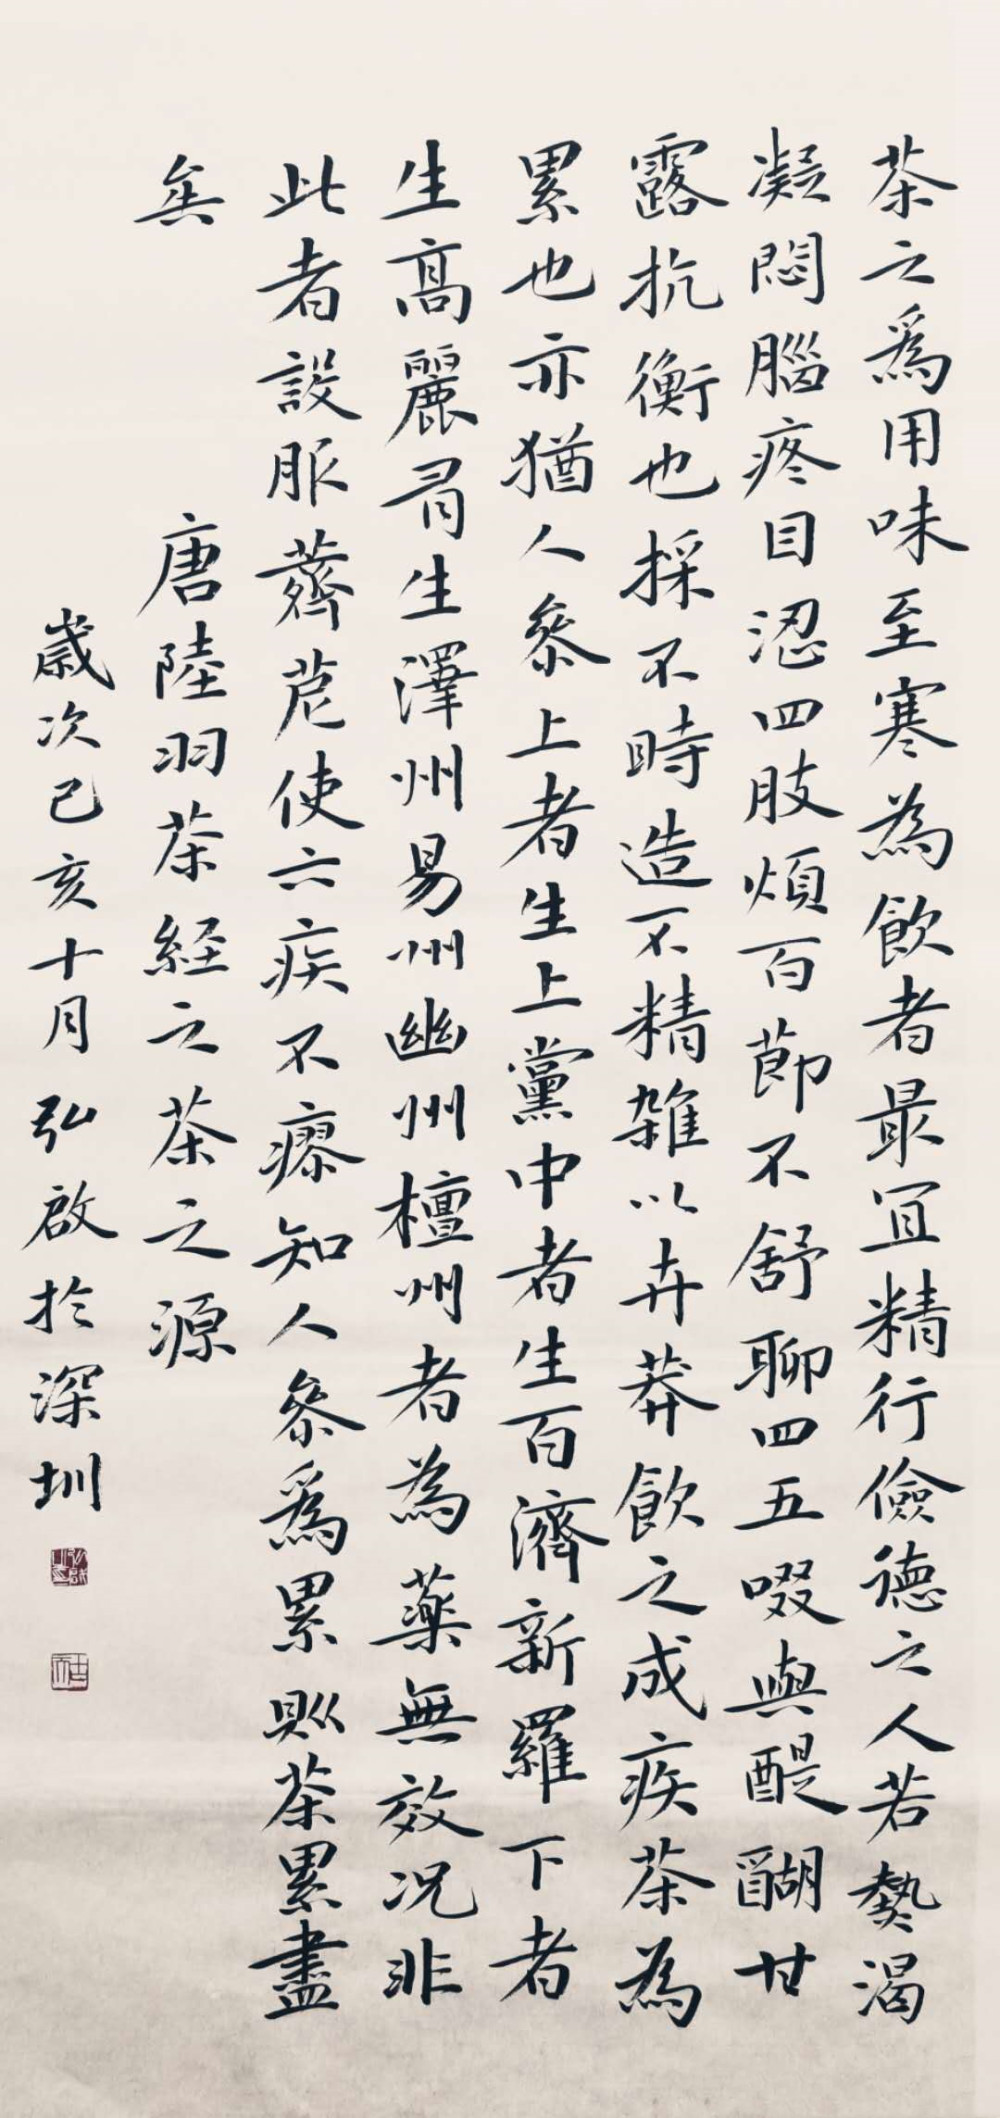 茶之為用味至寒為飲者最宜精行儉德之人若熱渴
凝悶腦疼目澀四肢煩百節不舒聊四五啜與醍醐甘
露抗衡也採不時造不精雜以卉莽飲之成疾茶為
累也亦猶人參上者生上黨中者生百濟新羅下者
生高麗有生澤州易州幽州檀州者為藥無效況非
此者設服薺苨使六疾不瘳知人參為累則茶累盡
矣
唐陸羽茶経之茶之源
歲次己亥十月弘啟於深圳